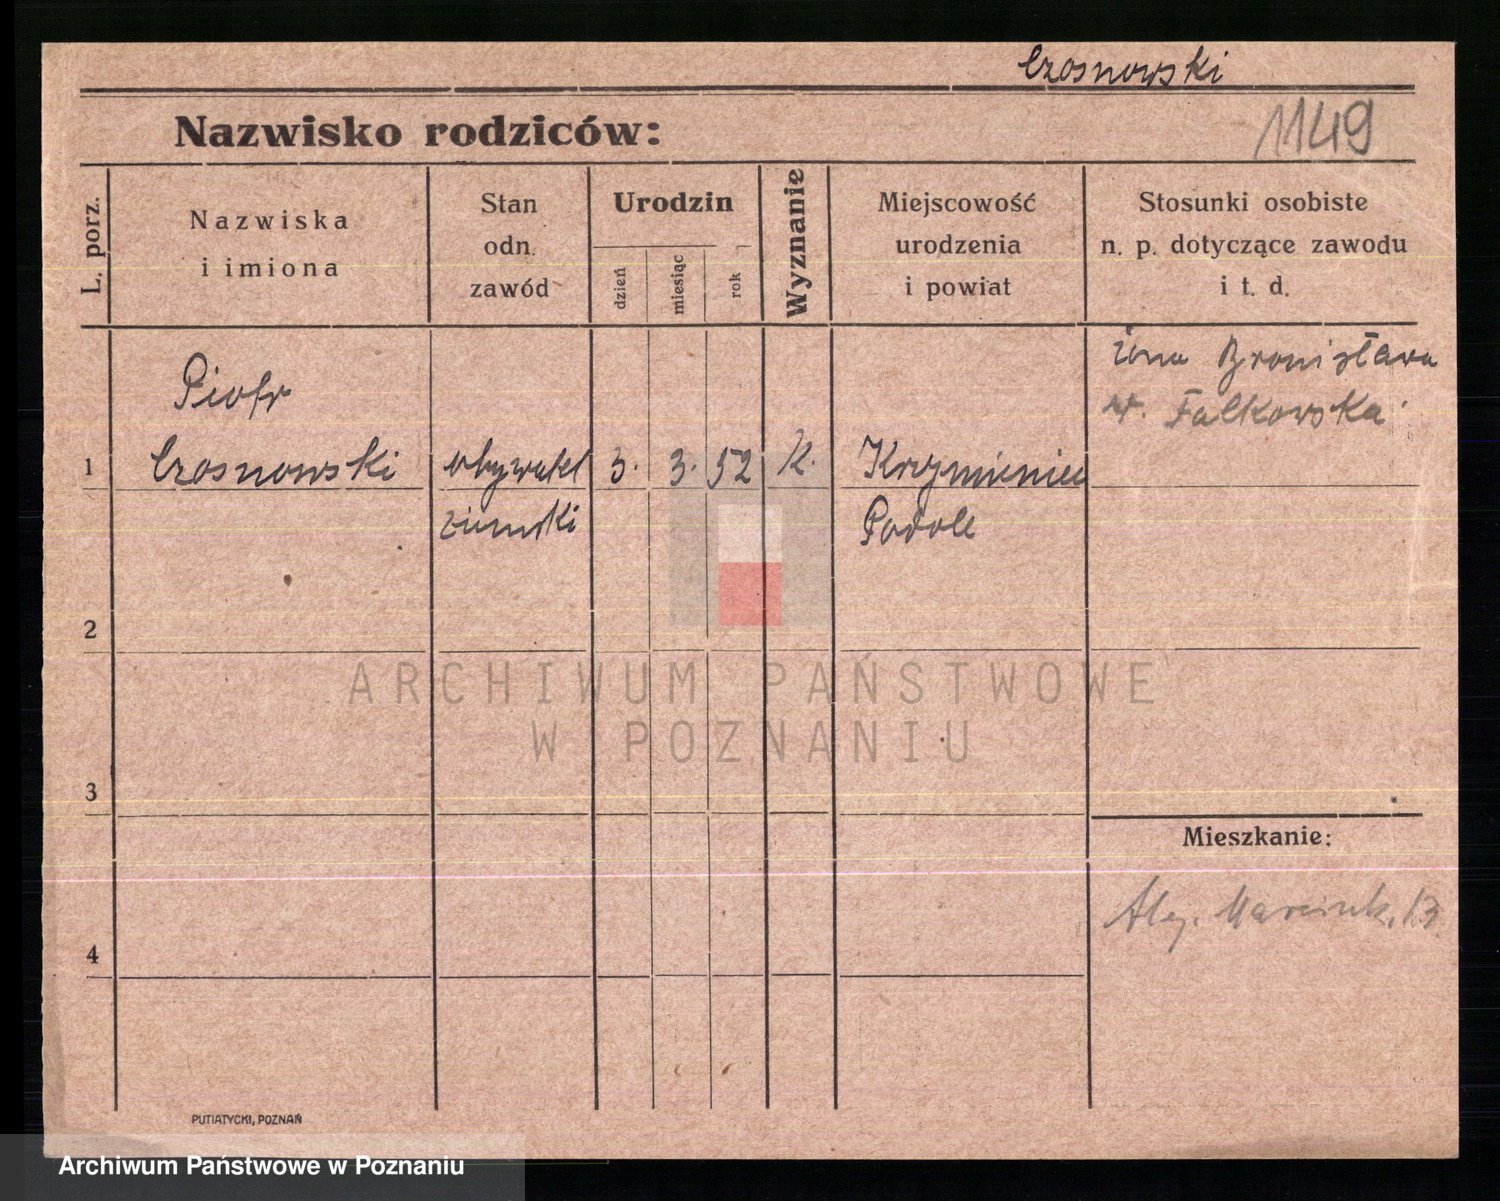 Czosnowski
Nazwisko rodziców:
1149
L. porz.
Nazwiska
i imiona
Stan
odn.
zawód
Urodzin
dzień
miesiąc
rok
Wyznanie
Miejscowość
urodzenia
i powiat
Stosunki osobiste
n. p. dotyczące zawodu
i t. d.
żona Bronisława
Falkowska
Piotr
1 Czosnowski obywatel 3. 3. 52 K. Krzymieniec
ziemski Podole
2
ARCHIWUM PAŃSTWOWE
W POZNANIU
3
Mieszkanie:
Alej. Marcink. 13
4
PUTIATYCKI, POZNAŃ
Archiwum Państwowe w Poznaniu